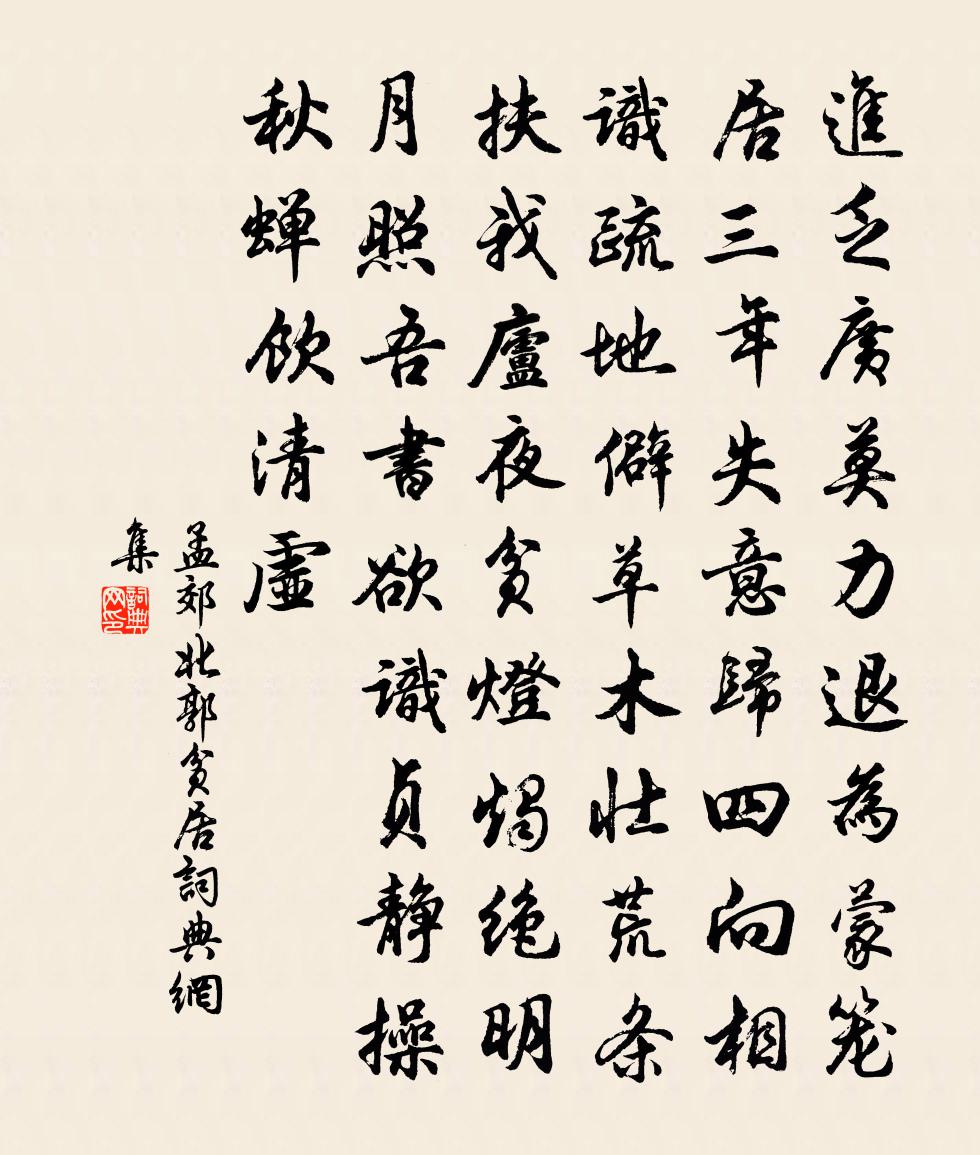 進乏廣莫力退為蒙笼
居三年失意歸四向相
識疏地僻草木壮荒条
扶我廬夜貧燈燭绝明
月照吾書欲識貞静操
秋蝉飲清虛
孟郊北郭貧居詞典網
集
詞典
网印